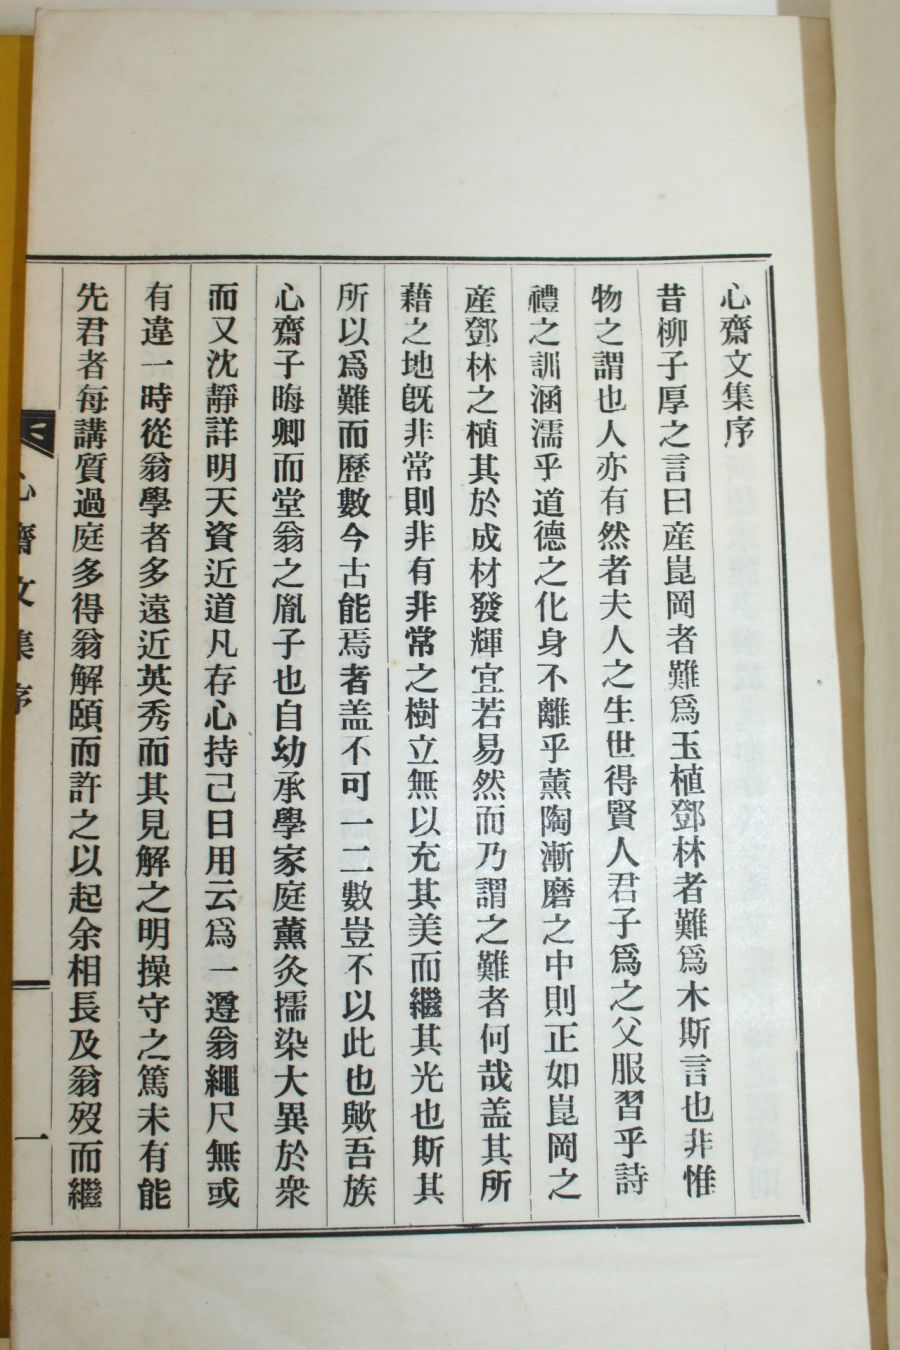 心齋文集序
昔柳子厚之言曰産崑岡者難爲玉植鄧林者難爲木斯言也非惟
物之謂也人亦有然者夫人之生世得賢人君子爲之父服習乎詩
禮之訓涵濡乎道德之化身不離乎薰陶漸磨之中則正如崑岡之
産鄧林之植其於成材發輝宜若易然而乃謂之難者何哉盖其所
藉之地旣非常則非有非常之樹立無以充其美而繼其光也斯其
所以爲難而歷數今古能焉者盖不可一二數豈不以此也歟吾族
心齋子晦卿而堂翁之胤子也自幼承學家庭薰灸擩染大異於衆
而又沈靜詳明天資近道凡存心持己日用云爲一遵翁繩尺無或
有違一時從翁學者多遠近英秀而其見解之明操守之篤未有能
先君者每講質過庭多得翁解頤而許之以起余相長及翁歿而繼
心齋文集序
一